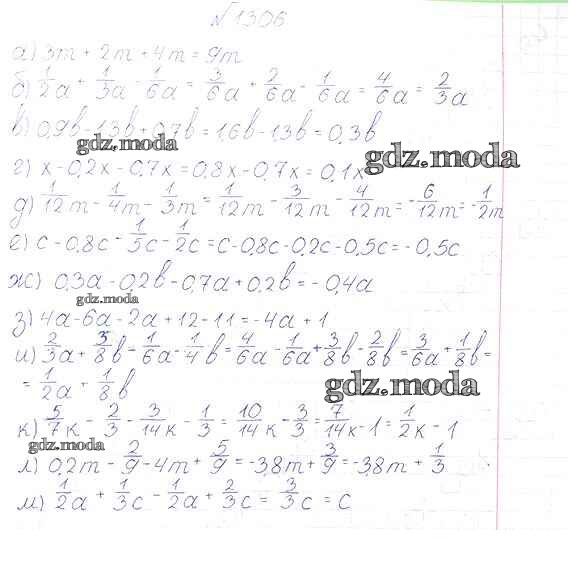 √1306
а) 3m + 2m + 4m = 9m
б) 1/2a + 1/3a - 1/6a = 3/6a + 2/6a - 1/6a = 4/6a = 2/3a
в) 0,9b - 1,3b + 0,7b = 1,6b - 1,3b = 0,3b
gdz.moda
gdz.moda
г) x - 0,2x - 0,7x = 0,8x - 0,7x = 0,1x
д) 1/12m - 1/4m - 1/3m = 1/12m - 3/12m - 4/12m = -6/12m = -1/2m
е) c - 0,8c - 1/5c - 1/2c = c - 0,8c - 0,2c - 0,5c = -0,5c
ж) 0,3a - 0,2b - 0,7a + 0,2b = -0,4a
gdz.moda
з) 4a - 6a - 2a + 12 - 11 = -4a + 1
и) 2/3a + 3/8b - 1/6a - 1/4b = 4/6a - 1/6a + 3/8b - 2/8b = 3/6a + 1/8b =
= 1/2a + 1/8b
gdz.moda
к) 5/7k - 2/3 - 3/14k - 1/3 = 10/14k - 3/3 = 7/14k - 1 = 1/2k - 1
gdz.moda
л) 0,2m - 2/9 - 4m + 5/9 = -3,8m + 3/9 = -3,8m + 1/3
м) 1/2a + 1/3c - 1/2a + 2/3c = 3/3c = c